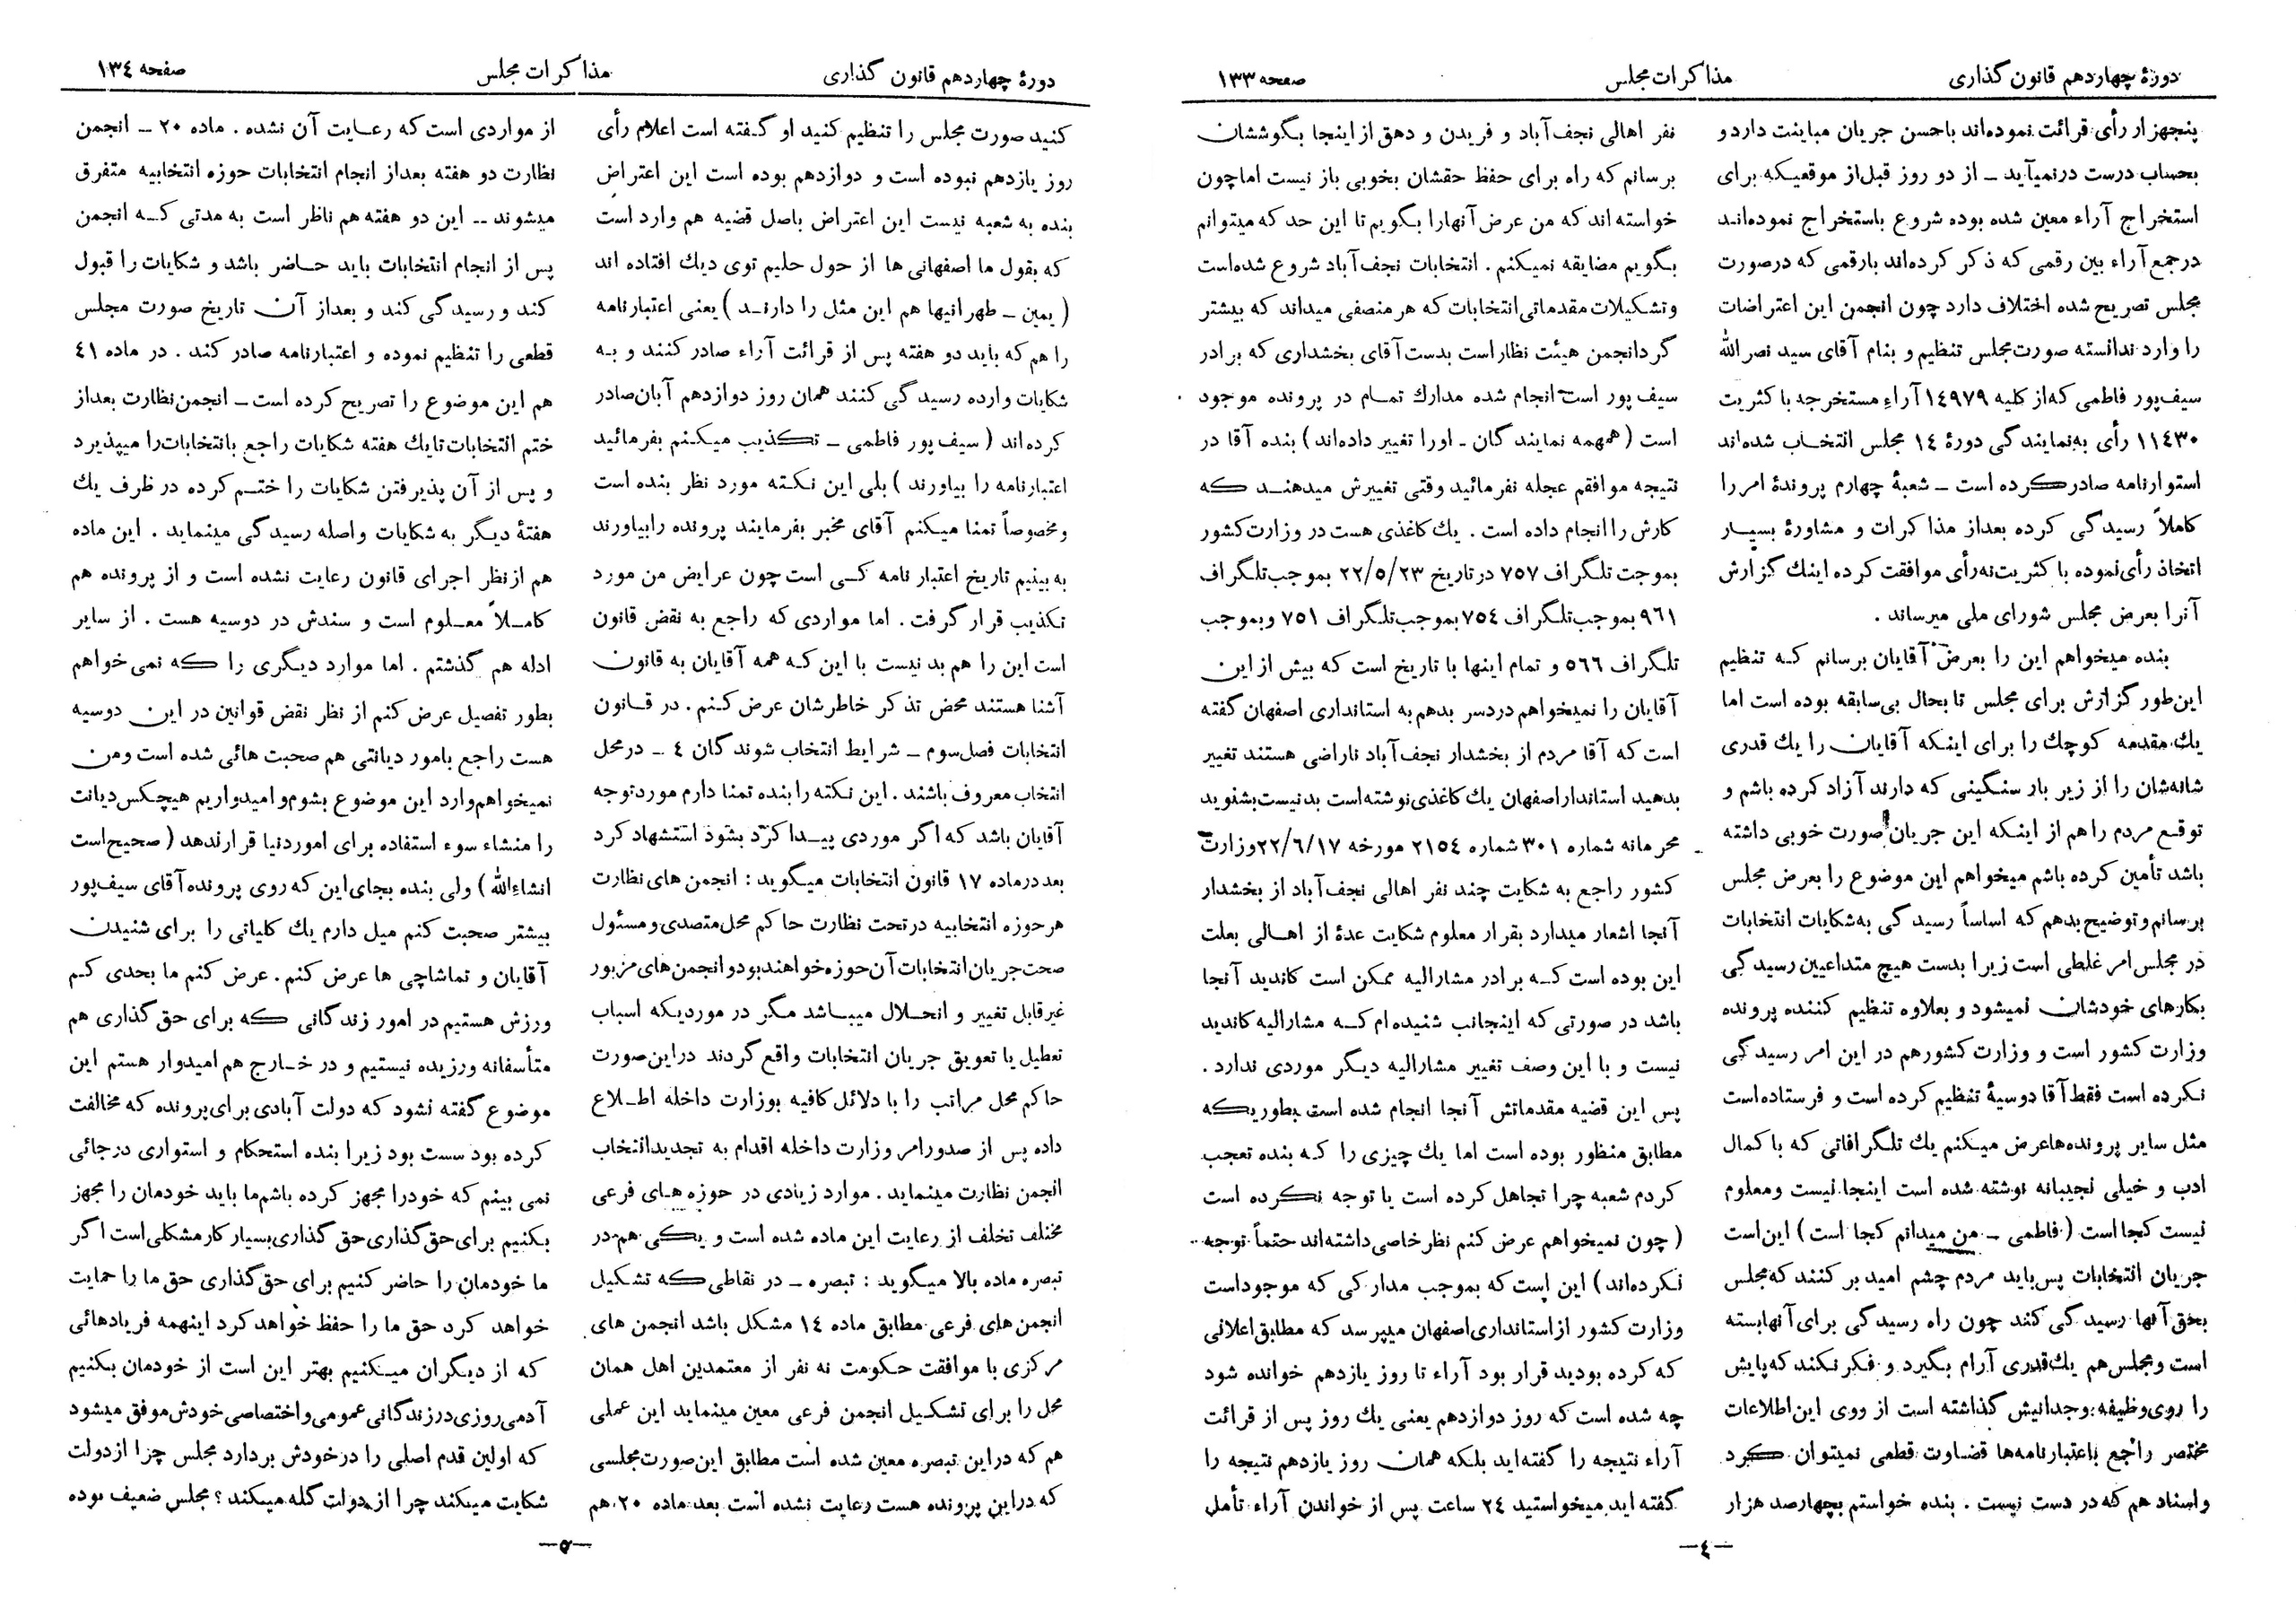 دورهٔ چهاردهم قانون گذاری
مذاکرات مجلس
صفحه ۱۳۳
پنجهزار رأی قرائت نموده‌اند باحسن جریان مباینت دارد و
بحساب درست درنمیآید – از دو روز قبل‌از موقعیکه برای
استخراج آراء معین شده بوده شروع باستخراج نموده‌اند
درجمع آراء بین رقمی که ذکر کرده‌اند بارقمی که درصورت
مجلس تصریح شده اختلاف دارد چون انجمن این اعتراضات
را وارد ندانسته صورت‌مجلس تنظیم و بنام آقای سید نصرالله
سیف‌پور فاطمی که‌از کلیه ۱٤۹۷۹ آراء مستخرجه باکثریت
۱۱٤۳۰ رأی به‌نمایندگی دورهٔ ۱٤ مجلس انتخاب شده‌اند
استوارنامه صادرکرده است – شعبهٔ چهارم پروندهٔ امر را
کاملاً رسیدگی کرده بعداز مذاکرات و مشاورهٔ بسیار
اتخاذ رأی‌نموده باکثریت‌نه‌رأی موافقت کرده اینك گزارش
آنرا بعرض مجلس شورای ملی میرساند .
بنده میخواهم این را بعرض آقایان برسانم که تنظیم
این‌طور گزارش برای مجلس تا بحال بی‌سابقه بوده است اما
یك مقدمه کوچك را برای اینکه آقایان را یك قدری
شانه‌شان را از زیر بار سنگینی که دارند آزاد کرده باشم و
توقع مردم را هم از اینکه این جریان صورت خوبی داشته
باشد تأمین کرده باشم میخواهم این موضوع را بعرض مجلس
برسانم‌و توضیح بدهم که اساساً رسیدگی به‌شکایات انتخابات
در مجلس امر غلطی است زیرا بدست هیچ متداعیین رسیدگی
بکارهای خودشان نمیشود و بعلاوه تنظیم کننده پرونده
وزارت کشور است و وزارت کشورهم در این امر رسیدگی
نکرده است فقط آقا دوسیهٔ تنظیم کرده است و فرستاده‌است
مثل سایر پرونده‌ها عرض میکنم یك تلگرافاتی که باکمال
ادب و خیلی نجیبانه نوشته شده است اینجا نیست ومعلوم
نیست کجا است ( فاطمی – من میدانم کجا است ) این‌است
جریان انتخابات پس‌باید مردم چشم امید بر کنند که‌مجلس
بحق آنها رسیدگی کند چون راه رسیدگی برای آنها بسته
است ومجلس‌هم یك‌قدری آرام بگیرد و فکر نکند که‌پایش
را روی‌وظیفه‌وجدانیش گذاشته است از روی این اطلاعات
مختصر راجع باعتبارنامه‌ها قضاوت قطعی نمیتوان کرد
واسناد هم که در دست نیست . بنده خواستم بچهارصد هزار
نفر اهالی نجف‌آباد و فریدن و دهق از اینجا بگوششان
برسانم که راه برای حفظ حقشان بخوبی باز نیست اما چون
خواسته‌اند که من عرض آنهارا بگویم تا این حد که میتوانم
بگویم مضایقه نمیکنم . انتخابات نجف‌آباد شروع شده‌است
وتشکیلات مقدماتی‌انتخابات که هر منصفی میداند که بیشتر
گردانجمن هیئت نظار است بدست آقای بخشداری که برادر
سیف‌پور است انجام شده مدارك تمام در پرونده موجود
است ( همهمه نمایندگان – اورا تغییر داده‌اند ) بنده آقا در
نتیجه موافقم عجله نفرمائید وقتی تغییرش میدهند که
کارش را انجام داده است . یك کاغذی هست در وزارت‌کشور
بموجت تلگراف ۷۵۷ درتاریخ ۲۲/۵/۲۳ بموجب‌تلگراف
۹٦۱ بموجب‌تلگراف ۷۵٤ بموجب‌تلگراف ۷۵۱ وبموجب
تلگراف ۵٦٦ و تمام اینها با تاریخ است که بیش از این
آقایان را نمیخواهم دردسر بدهم به استانداری اصفهان گفته
است که آقا مردم از بخشدار نجف‌آباد ناراضی هستند تغییر
بدهید استاندار اصفهان یك کاغذی‌نوشته‌است بدنیست‌بشنوید
محرمانه شماره ۳۰۱ شماره ۲۱۵٤ مورخه ۲۲/٦/۱۷ وزارت
کشور راجع به شکایت چند نفر اهالی نجف‌آباد از بخشدار
آنجا اشعار میدارد بقرار معلوم شکایت عدهٔ از اهالی بعلت
این بوده است که برادر مشارالیه ممکن است کاندید آنجا
باشد در صورتی که اینجانب شنیده‌ام که مشارالیه کاندید
نیست و با این وصف تغییر مشارالیه دیگر موردی ندارد .
پس این قضیه مقدماتش آنجا انجام شده است بطوریکه
مطابق منظور بوده است اما یك چیزی را که بنده تعجب
کردم شعبه چرا تجاهل کرده است یا توجه نکرده است
( چون نمیخواهم عرض کنم نظرخاصی داشته‌اند حتماً توجه
نکرده‌اند ) این است که بموجب مدارکی که موجوداست
وزارت کشور از استانداری‌اصفهان میپرسد که مطابق اعلانی
که کرده بودید قرار بود آراء تا روز یازدهم خوانده شود
چه شده است که روز دوازدهم یعنی یك روز پس از قرائت
آراء نتیجه را گفته‌اید بلکه همان روز یازدهم نتیجه را
گفته‌اید میخواستید ۲٤ ساعت پس از خواندن آراء تأمل
–٤–
دورهٔ چهاردهم قانون گذاری
مذاکرات مجلس
صفحه ۱۳٤
کنید صورت مجلس را تنظیم کنید او گفته است اعلام رأی
روز یازدهم نبوده است و دوازدهم بوده است این اعتراض
بنده به شعبه نیست این اعتراض باصل قضیه هم وارد است
که بقول ما اصفهانی ها از حول حلیم توی دیك افتاده اند
( یمین – طهرانیها هم این مثل را دارند ) یعنی اعتبارنامه
را هم که باید دو هفته پس از قرائت آراء صادر کنند و به
شکایات وارده رسیدگی کنند همان روز دوازدهم آبان‌صادر
کرده‌اند ( سیف‌پور فاطمی – تکذیب میکنم بفرمائید
اعتبارنامه را بیاورند ) بلی این نکته مورد نظر بنده است
ومخصوصاً تمنا میکنم آقای مخبر بفرمایند پرونده رابیاورند
به بینیم تاریخ اعتبارنامه کی است چون عرایض من مورد
تکذیب قرار گرفت . اما مواردی که راجع به نقض قانون
است این را هم بد نیست با این که همه آقایان به قانون
آشنا هستند محض تذکر خاطرشان عرض کنم . در قانون
انتخابات فصل‌سوم – شرایط انتخاب شوندگان ٤ – درمحل
انتخاب معروف باشند . این نکته را بنده تمنا دارم موردتوجه
آقایان باشد که اگر موردی پیدا کرد بشود استشهاد کرد
بعد درماده ۱۷ قانون انتخابات میگوید : انجمن های نظارت
هرحوزه انتخابیه درتحت نظارت حاکم محل‌متصدی‌ومسئول
صحت‌جریان‌انتخابات آن‌حوزه‌خواهندبود وانجمن‌های مزبور
غیرقابل تغییر و انحلال میباشد مگر در موردیکه اسباب
تعطیل یا تعویق جریان انتخابات واقع گردند دراین‌صورت
حاکم محل مراتب را با دلائل کافیه بوزارت داخله اطلاع
داده پس از صدورامر وزارت داخله اقدام به تجدیدانتخاب
انجمن نظارت مینماید . موارد زیادی در حوزه های فرعی
مختلف تخلف از رعایت این ماده شده است و یکی هم‌در
تبصره ماده بالا میگوید : تبصره – در نقاطی که تشکیل
انجمن‌های فرعی مطابق ماده ۱٤ مشکل باشد انجمن های
مرکزی با موافقت حکومت نه نفر از معتمدین اهل همان
محل را برای تشکیل انجمن فرعی معین مینماید این عملی
هم که دراین تبصره معین شده است مطابق این‌صورت‌مجلسی
که دراین پرونده هست رعایت نشده است بعد ماده ۲۰ هم
از مواردی است که رعایت آن نشده . ماده ۲۰ – انجمن
نظارت دو هفته بعداز انجام انتخابات حوزه انتخابیه متفرق
میشوند – این دو هفته هم ناظر است به مدتی که انجمن
پس از انجام انتخابات باید حاضر باشد و شکایات را قبول
کند و رسیدگی کند و بعداز آن تاریخ صورت مجلس
قطعی را تنظیم نموده و اعتبارنامه صادر کند . در ماده ٤۱
هم این موضوع را تصریح کرده است – انجمن نظارت بعداز
ختم انتخابات تایك هفته شکایات راجع بانتخابات‌را میپذیرد
و پس از آن پذیرفتن شکایات را ختم کرده در ظرف یك
هفتهٔ دیگر به شکایات واصله رسیدگی مینماید . این ماده
هم از نظر اجرای قانون رعایت نشده است و از پرونده هم
کاملاً معلوم است و سندش در دوسیه هست . از سایر
ادله هم گذشتم . اما موارد دیگری را که نمی خواهم
بطور تفصیل عرض کنم از نظر نقض قوانین در این دوسیه
هست راجع بامور دیانتی هم صحبت هائی شده است ومن
نمیخواهم‌وارد این موضوع بشوم‌وامیدواریم هیچکس‌دیانت
را منشاء سوء استفاده برای اموردنیا قرارندهد ( صحیح‌است
انشاءالله ) ولی بنده بجای‌این که‌روی پرونده‌آقای سیف‌پور
بیشتر صحبت کنم میل دارم یك کلیاتی را برای شنیدن
آقایان و تماشاچی ها عرض کنم . عرض کنم ما بحدی کم
ورزش هستیم در امور زندگانی که برای حق گذاری هم
متأسفانه ورزیده نیستیم و در خارج هم امیدوار هستم این
موضوع گفته نشود که دولت آبادی برای‌پرونده که مخالفت
کرده بود سست بود زیرا بنده استحکام و استواری درجائی
نمی بینم که خودرا مجهز کرده باشم‌ما باید خودمان را مجهز
بکنیم برای حق‌گذاری حق گذاری‌بسیار کارمشکلی‌است اگر
ما خودمان را حاضر کنیم برای حق‌گذاری حق ما را حمایت
خواهد کرد حق ما را حفظ خواهدکرد اینهمه فریادهائی
که از دیگران میکنیم بهتر این است از خودمان بکنیم
آدمی روزی درزندگانی‌عمومی‌واختصاصی خودش‌موفق میشود
که اولین قدم اصلی را درخودش بردارد مجلس چرا از دولت
شکایت میکند چرا از دولت گله میکند ؟ مجلس ضعیف بوده
–۵–